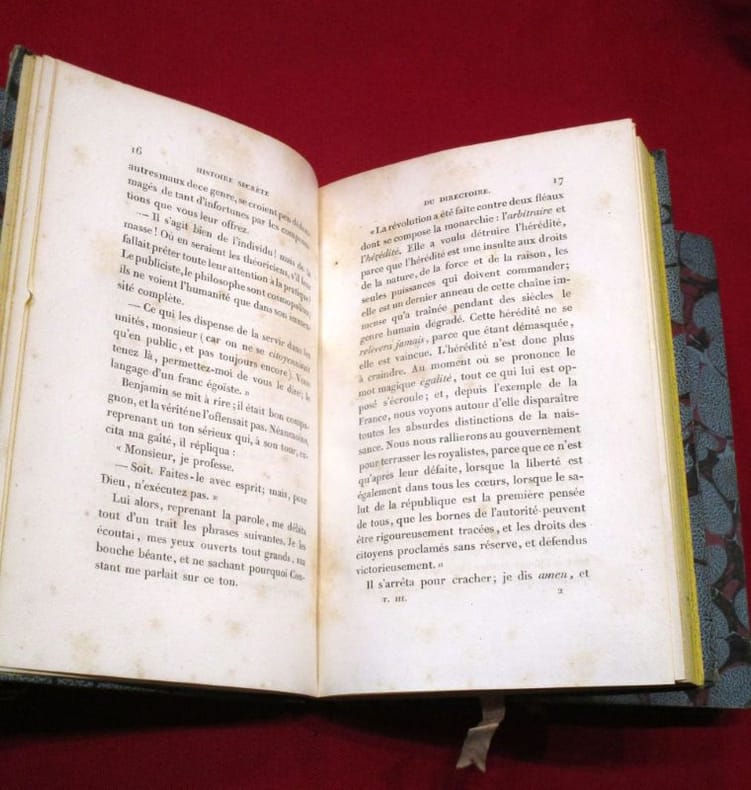 16
HISTOIRE SECRÈTE
autres maux de ce genre, se croient peu dédom-
magés de tant d'infortunes par les compensa-
tions que vous leur offrez.
— Il s'agit bien de l'individu! mais de la
masse! Où en seraient les théoriciens, s'il leur
fallait prêter toute leur attention à la pratique?
Le publiciste, le philosophe sont cosmopolites;
ils ne voient l'humanité que dans son immen-
sité complète.
— Ce qui les dispense de la servir dans les
unités, monsieur (car on ne se citoyennisait
qu'en public, et pas toujours encore). Vous
tenez là, permettez-moi de vous le dire, le
langage d'un franc égoïste. »
Benjamin se mit à rire; il était bon compa-
gnon, et la vérité ne l'offensait pas. Néanmoins,
reprenant un ton sérieux qui, à son tour, ex-
cita ma gaîté, il répliqua :
« Monsieur, je professe.
— Soit. Faites-le avec esprit; mais, pour
Dieu, n'exécutez pas. »
Lui alors, reprenant la parole, me débita
tout d'un trait les phrases suivantes. Je les
écoutai, mes yeux ouverts tout grands, ma
bouche béante, et ne sachant pourquoi Con-
stant me parlait sur ce ton.
DU DIRECTOIRE.
17
« La révolution a été faite contre deux fléaux
dont se compose la monarchie : l'arbitraire et
l'hérédité. Elle a voulu détruire l'hérédité,
parce que l'hérédité est une insulte aux droits
de la nature, de la force et de la raison, les
seules puissances qui doivent commander;
elle est un dernier anneau de cette chaîne im-
mense qu'a traînée pendant des siècles le
genre humain dégradé. Cette hérédité ne se
relèvera jamais, parce que étant démasquée,
elle est vaincue. L'hérédité n'est donc plus
à craindre. Au moment où se prononce le
mot magique égalité, tout ce qui lui est op-
posé s'écroule; et, depuis l'exemple de la
France, nous voyons autour d'elle disparaître
toutes les absurdes distinctions de la nais-
sance. Nous nous rallierons au gouvernement
pour terrasser les royalistes, parce que ce n'est
qu'après leur défaite, lorsque la liberté est
également dans tous les cœurs, lorsque le sa-
lut de la république est la première pensée
de tous, que les bornes de l'autorité peuvent
être rigoureusement tracées, et les droits des
citoyens proclamés sans réserve, et défendus
victorieusement. »
Il s'arrêta pour cracher; je dis amen, et
T. III.
2